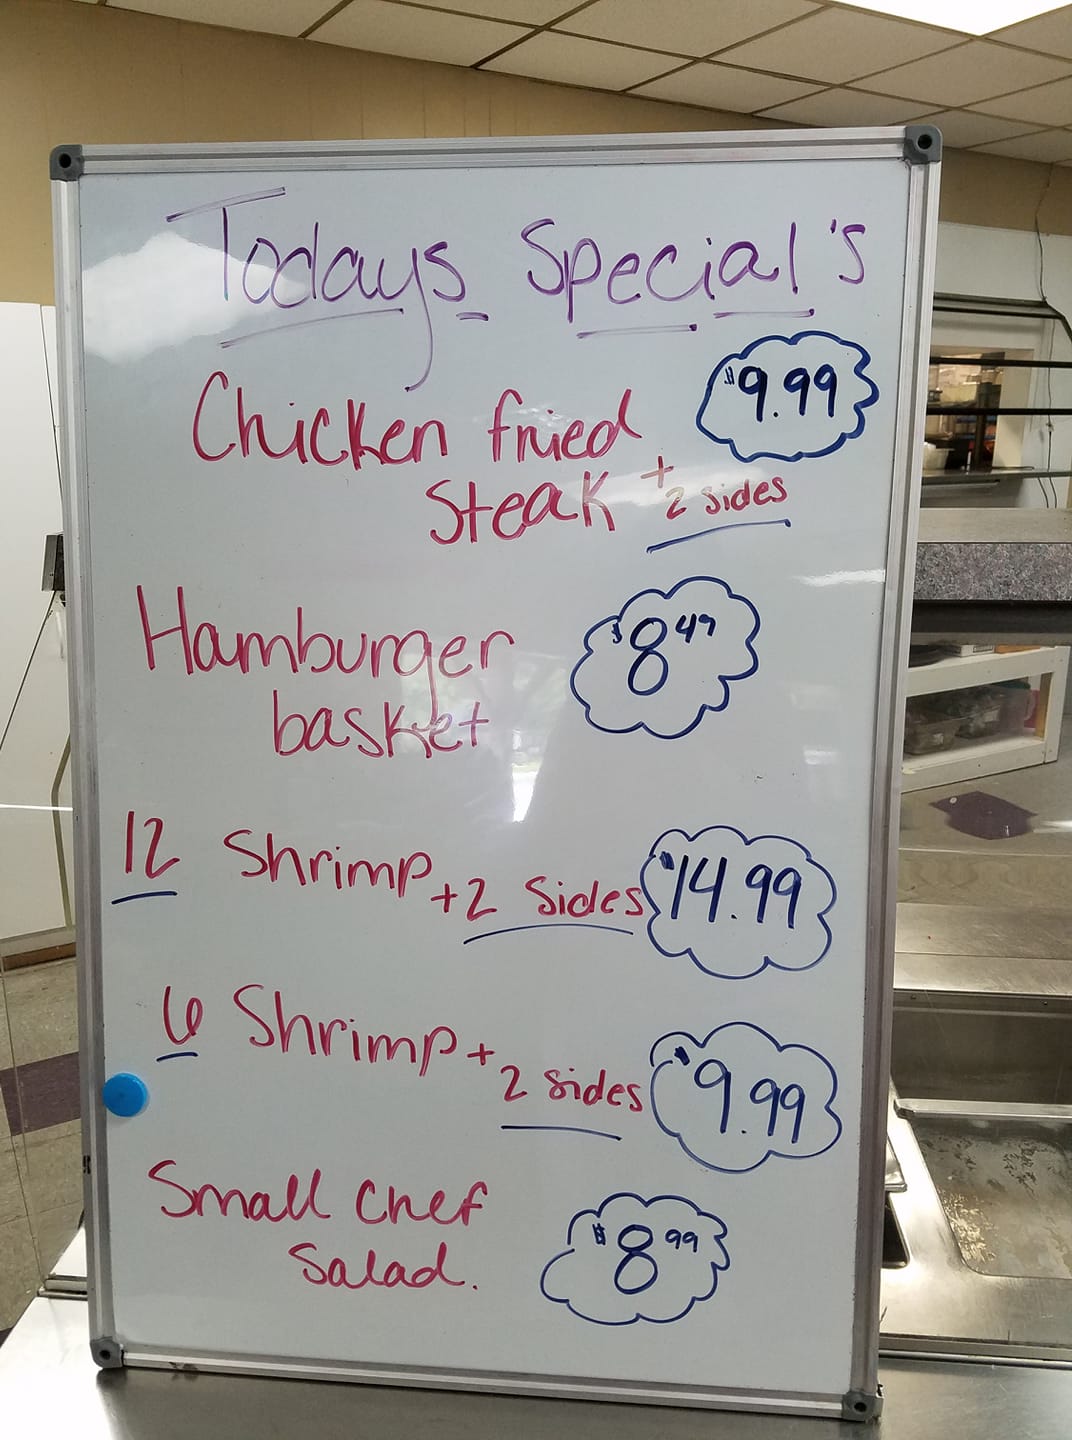 Todays Special's
Chicken fried $9.99
Steak + 2 sides
Hamburger $8.49
basket
12 Shrimp + 2 Sides $14.99
6 Shrimp + 2 sides $9.99
Small Chef
Salad. $8.99